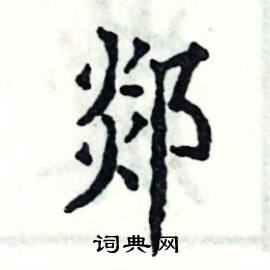 郯
词典网